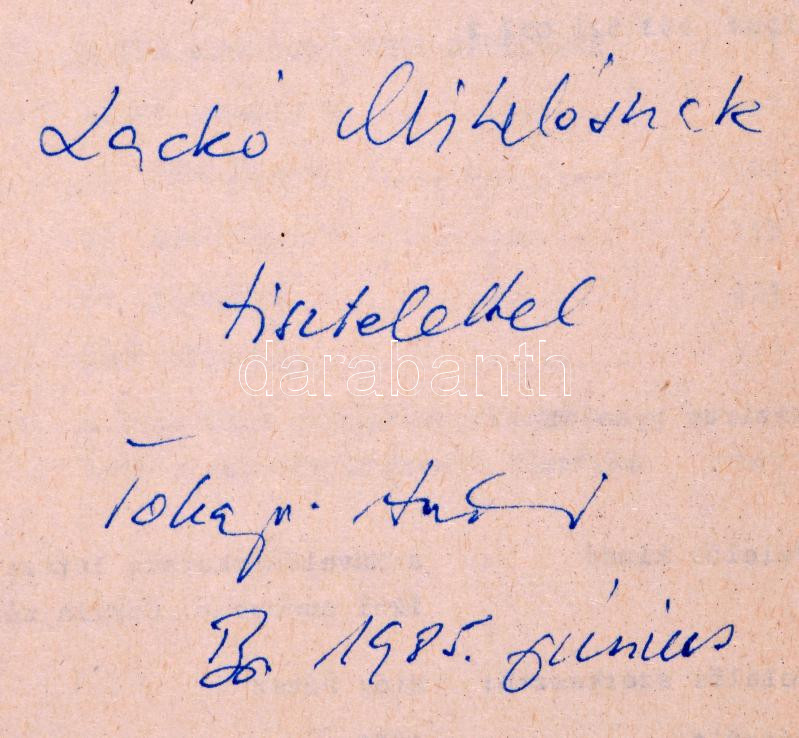 Lackó Miklósnak
tisztelettel
darabanth
Tokaji
Bp. 1985. június